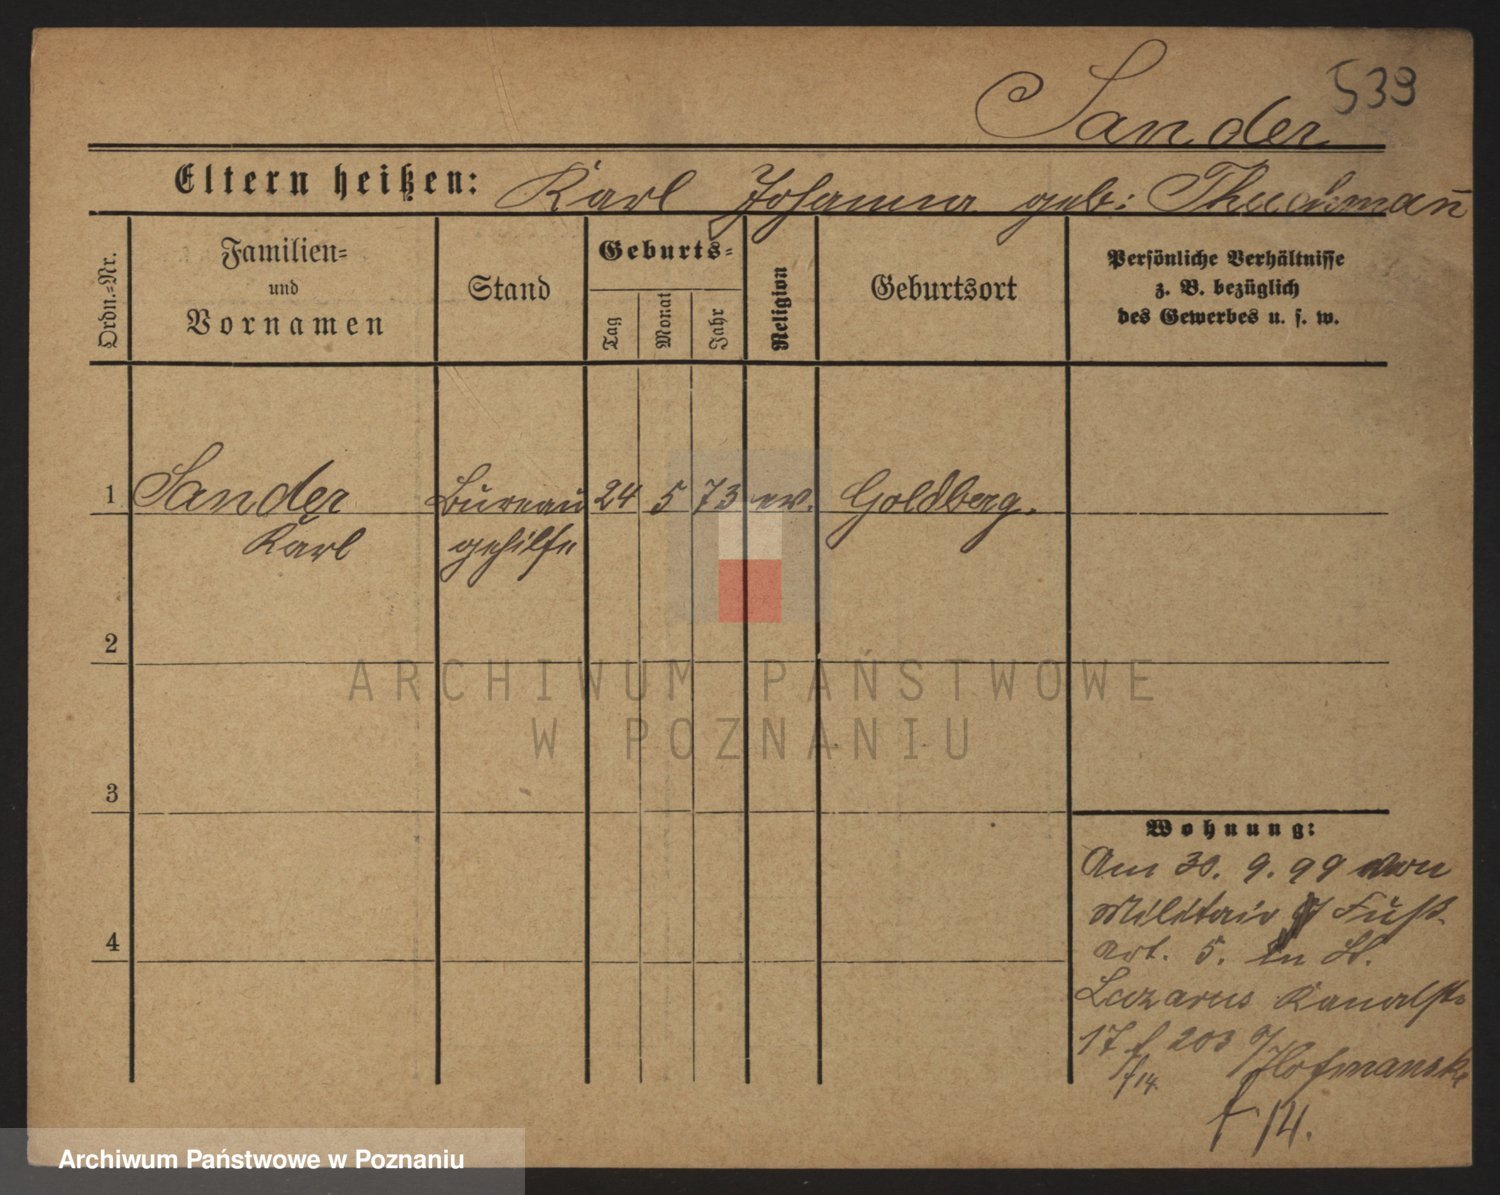 539
Sander
Eltern heißen: Karl Johanna geb:
Ordn.-Nr.
Familien-
und
Vornamen
Stand
Geburts-
Tag
Monat
Jahr
Religion
Geburtsort
Persönliche Verhältnisse
z. B. bezüglich
des Gewerbes u. s. w.
1 Sander Bureau 24 5 73 ev. Goldberg.
Karl gehilfe
2
ARCHIWUM PAŃSTWOWE
W POZNANIU
3
Wohnung:
Am 30. 9. 99 von
Militair Fuß-
Art. 5. in St.
4
Lazarus Kanalstr
17 f 203
f 14
f 14.
Archiwum Państwowe w Poznaniu